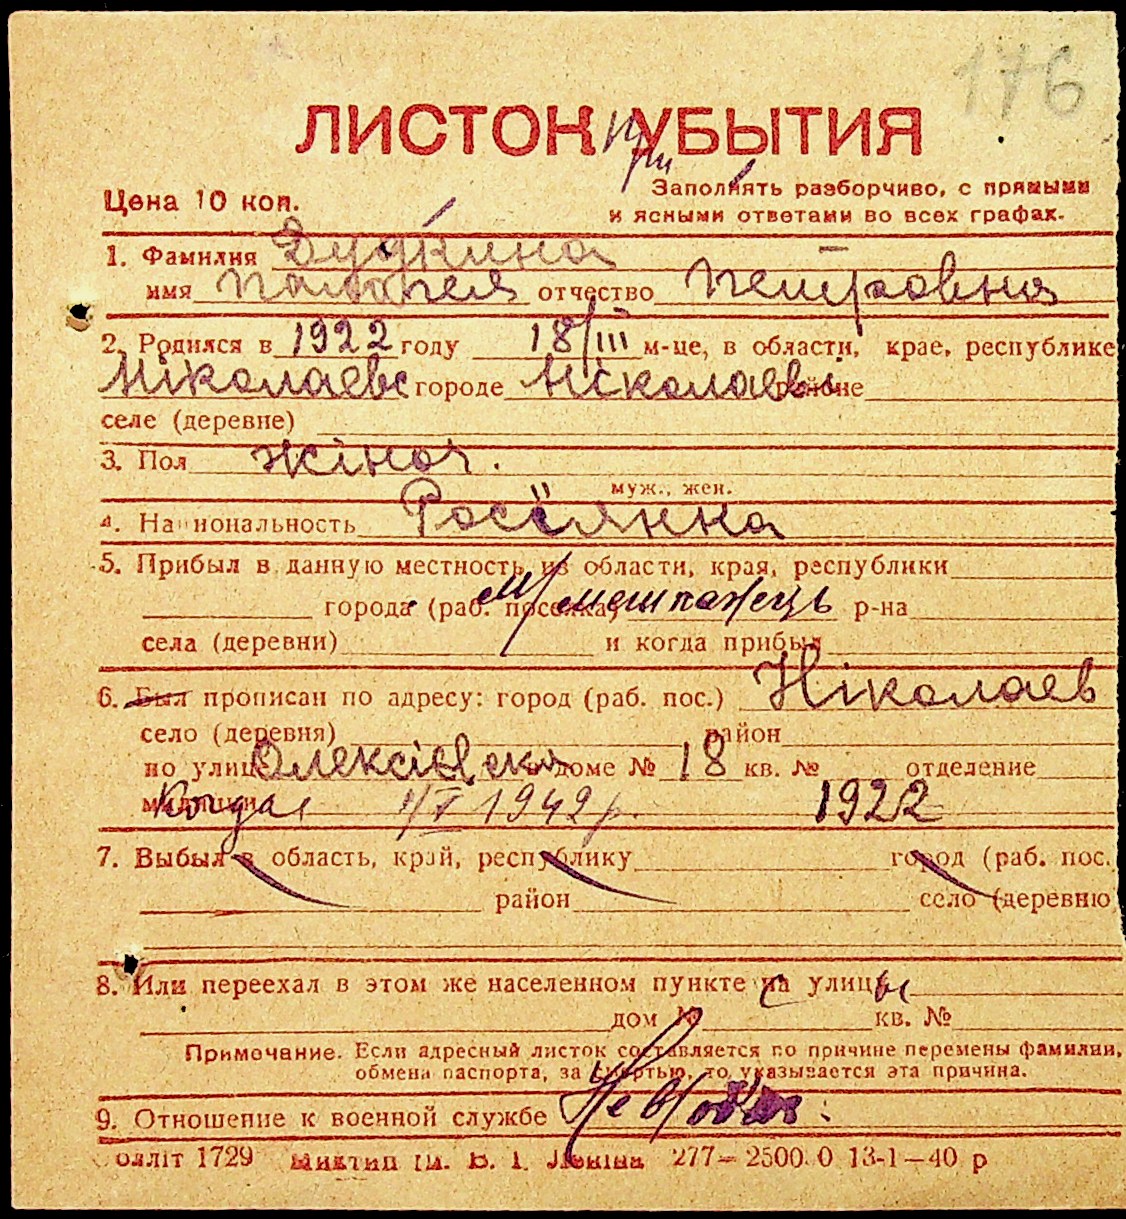 176
ЛИСТОК при УБЫТИЯ
Цена 10 коп.
Заполнять разборчиво, с прямыми
и ясными ответами во всех графах.
1. Фамилия Дудкина
имя Палагея отчество Петровна
2. Родился в 1922 году 18/III м-це, в области, крае, республике
Ніколаевс городе Ніколаеві районе
селе (деревне)
3. Пол жіноч.
муж., жен.
4. Национальность Россіянка
5. Прибыл в данную местность из области, края, республики
города (раб. поселка) р-на
села (деревни) и когда прибыл
6. Был прописан по адресу: город (раб. пос.) Ніколаев
село (деревня) район
по улице Олексіевска доме № 18 кв. № отделение
милиции Когда 1/V 1942 р. 1922
7. Выбыл в область, край, республику город (раб. пос.
район село (деревню
8. Или переехал в этом же населенном пункте на с улицы
дом № кв. №
Примечание. Если адресный листок составляется по причине перемены фамилии,
обмена паспорта, за смертью, то указывается эта причина.
9. Отношение к военной службе
Олліт 1729 Миктип ім. В. І. Леніна 277—2500.0 13-1—40 р